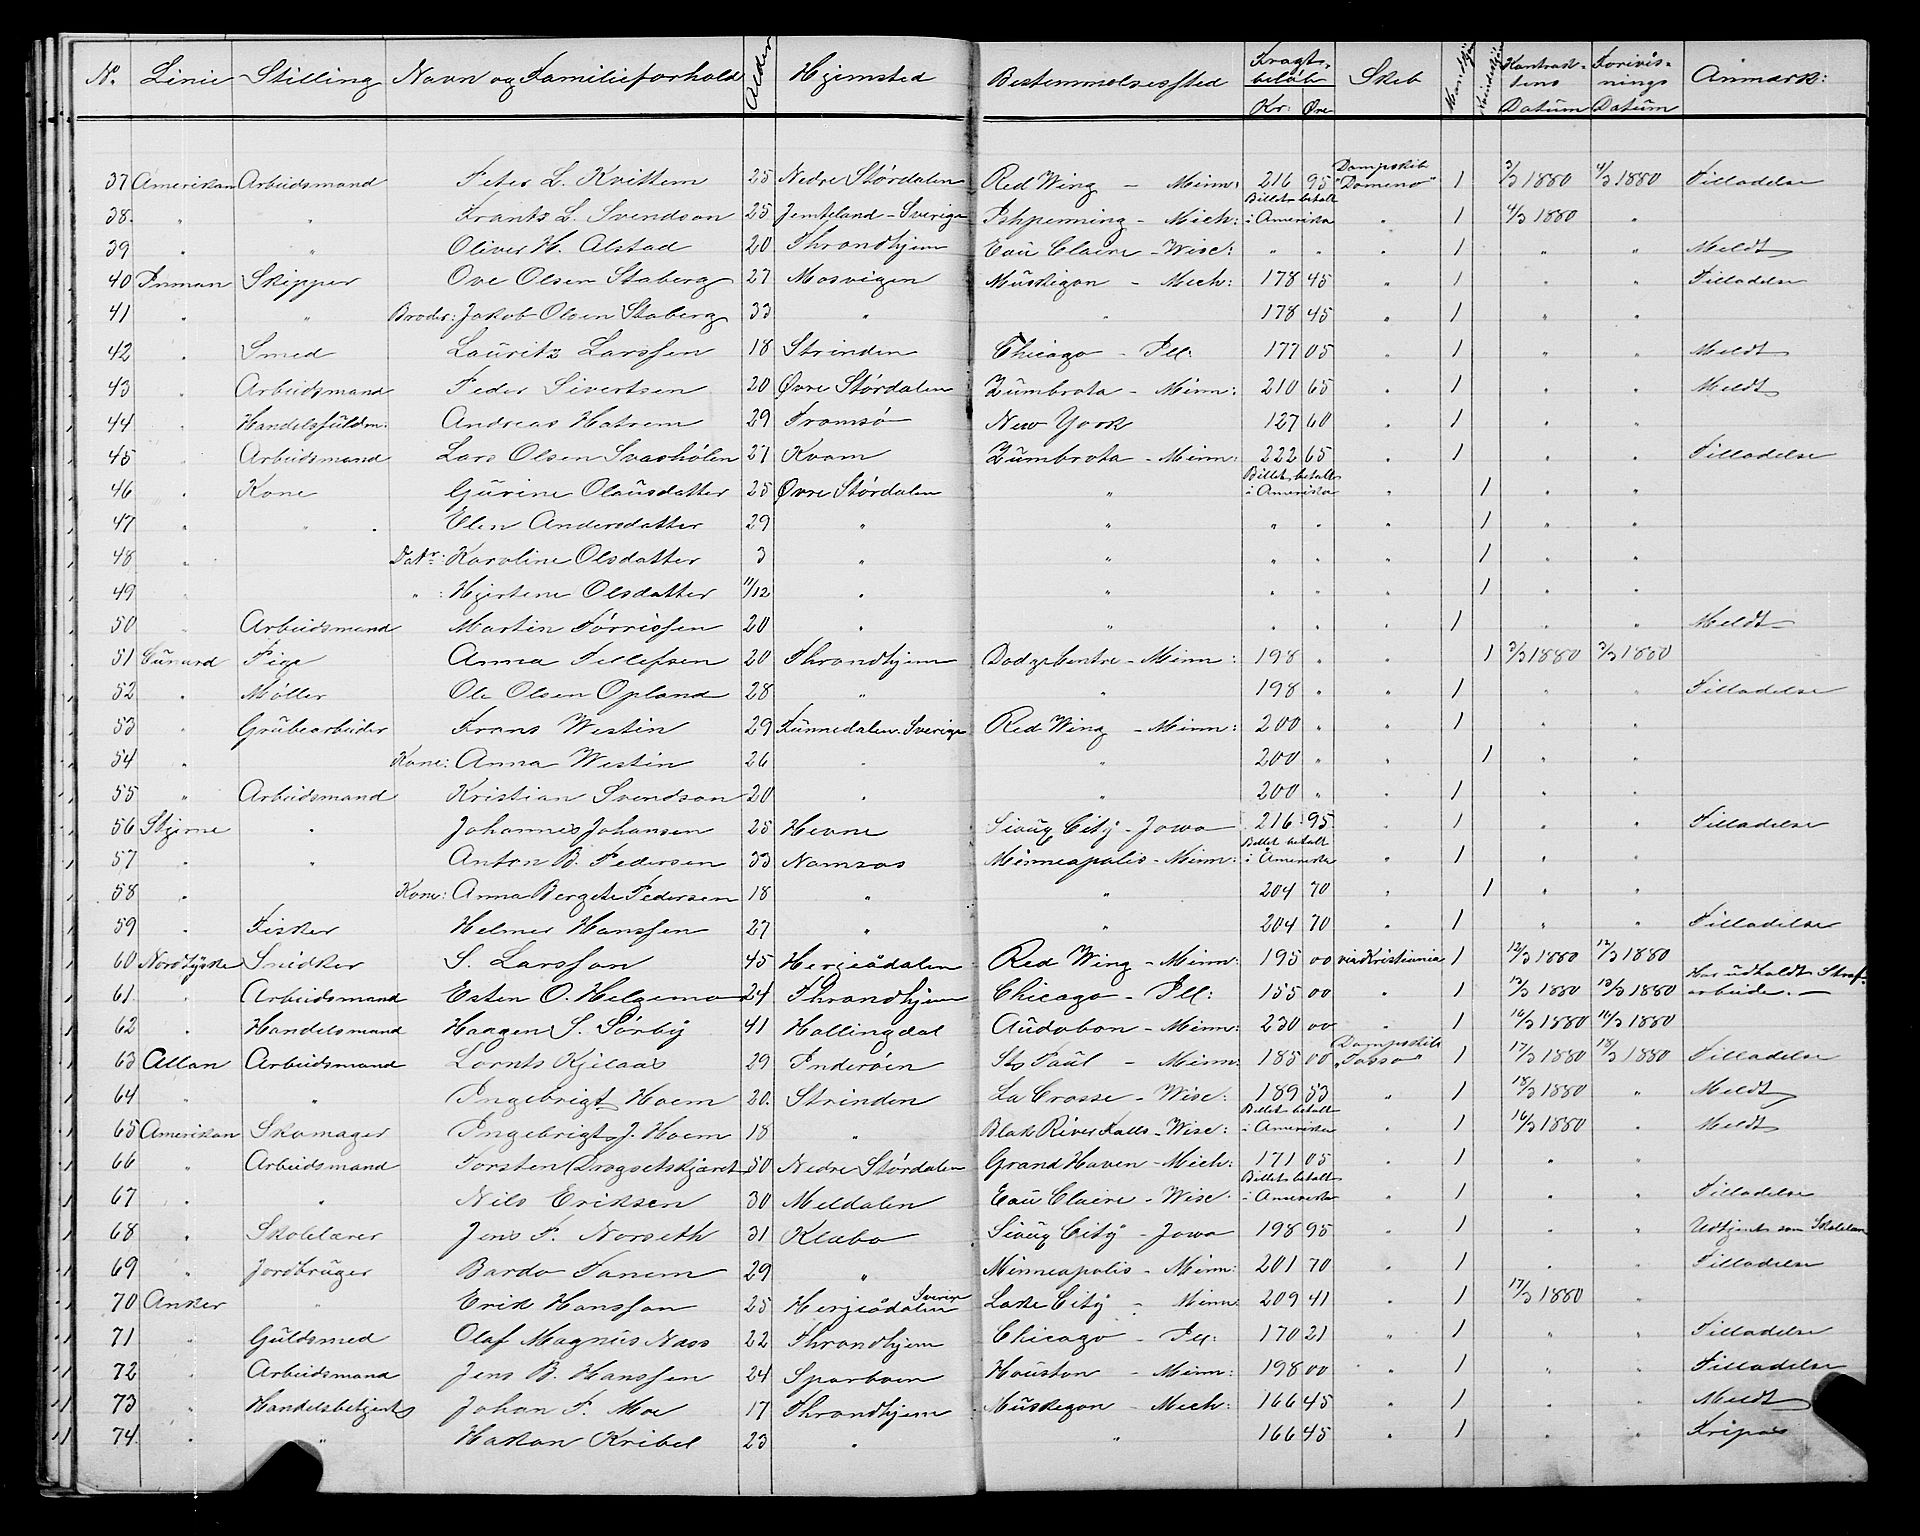 No. Linie Stilling Navn og Familieforhold Alder Hjemsted Bestemmelsessted Fragtbeløb Kr: Øre Skib Mandkjøn Kvindekjøn Kontraktens Datum Forevisnings Datum Anmærk:
37 Amerikan Arbeidsmand Peter L. Kvittem 25 Nedre Størdalen Red Wing - Minn: 216 95 Dampskib "Domino" 1 3/3 1880 4/3 1880 Tilladelse
38. " " Frants L. Svendson 25 Jemteland - Sverige Ishpenning - Mich: Billet betalt i Amerika " 1 4/3 1880 "
39 " " Oliver H. Alstad 20 Throndhjem Eau Claire - Wisc: " " " 1 " " Meldt
40 Inman Skipper Ove Olsen Staberg 27 Mosvigen Muskegon - Mich: 178 45 " 1 " " Tilladelse
41 " " Broder: Jakob Olsen Staberg 33 " " 178 45 " 1 " "
42 " Smed Lauritz Larssen 18 Strinden Chicago - Ill: 177 05 " 1 " " Meldt
43 " Arbeidsmand Peder Sivertsen 20 Øvre Størdalen Zumbrota - Minn: 210 65 " 1 " " Meldt
44 " Handelsfuldm: Andreas Hatrem 29 Tromsø New York 127 60 " 1 " "
45 " Arbeidsmand Lars Olsen 27 Kvam Zumbrota - Minn: 222 65 " 1 " " Tilladelse
46 " Kone Gurine Olausdatter 25 Øvre Størdalen " Billet betalt i Amerika " 1 " "
47 " " Elen Andersdatter 29 " " " " " 1 " "
48 " Dattr: Karoline Olsdatter 3 " " " " " 1 " "
49 " " : Olsdatter 11/12 " " " " " 1 " "
50 " Arbeidsmand Martin Tørrissen 20 " " " " " 1 " " Meldt
51 Cunard Pige Anna Tellefsen 20 Throndhjem Dodge Centre - Minn: 198 " " 1 3/3 1880 3/3 1880
52 " Møller Ole Olsen Opland 28 " " 198 " " 1 " " Tilladelse
53 " Grubearbeider Frans Westin 29 Sverige Red Wing - Minn: 200 " " 1 " "
54 " Kone: Anna Westin 26 " " 200 " " 1 " "
55 " Arbeidsmand Kristian Svendson 20 " " 200 " " 1 " "
56 Stjerne " Johannes Johansen 25 Hevne Sioux City - Jowa 216 95 " 1 " " Tilladelse
57 " " Anton B. Pedersen 33 Namsos Minneapolis - Minn: Billet betalt i Amerika " 1 " "
58 " Kone: Anna Bergete Pedersen 18 " " 204 70 " 1 " "
59 " Fisker Helmer Hanssen 27 " " 204 70 " 1 " " Tilladelse
60 Nordtyske Snedker S. Larsson 45 Herjeådalen Red Wing - Minn: 195 00 via Kristiania 1 12/3 1880 12/3 1880
61 " Arbeidsmand Esten O. Helgemo 24 Throndhjem Chicago - Ill: 155 00 " 1 13/3 1880 13/3 1880 Har udholdt Strafarbeide. -
62 " Handelsmand Haagen S. Sørby 41 Hallingdal Audobon - Minn: 230 00 " 1 16/3 1880 16/3 1880
63 Allan Arbeidsmand Lornts Kjelaas 29 Inderøen St Paul - Minn: 185 00 Dampskib "Tasso" 1 17/3 1880 18/3 1880 Tilladelse
64 " " Ingebrigt Hoem 20. Strinden La Crosse - Wisc: 189 53 " 1 18/3 1880 " Meldt
65 Amerikan Skomager Ingebrigt J. Hoem 18 " Blak River Falls - Wisc: Billet betalt i Amerika " 1 16/3 1880 " Meldt
66 " Arbeidsmand Torsten Drogsetskjæret 50 Nedre Størdalen Grand Haven - Mich: 171 05 " 1 " "
67 " " Nils Eriksen 30 Meldalen Eau Claire - Wisc: Billet betalt i Amerika " 1 " " Tilladelse
68 " Skolelærer Jens P. Norseth 31 Klæbo Sioux City - Jowa 198 95 " 1 " " Udtjent som Skolelær
69 " Jordbruger Bardo Tanem 29 " Minneapolis - Minn: 201 70 " 1 " " Tilladelse
70 Anker " Erik Hansson 25 Herjeådalen Sverige Lake City - Minn 209 41 " 1 17/3 1880 "
71 " Guldsmed Olaf Magnus Næss 22 Throndhjem Chicago - Ill: 170 21 " 1 " " Tilladelse
72 " Arbeidsmand Jens B. Hanssen 24 Sparboen Houston - Minn: 198 00 " 1 " " Tilladelse
73 " Handelsbetjent Johan F. Moe 17 Throndhjem Muskegon - Mich: 166 45 " 1 " " Meldt
74. " " Hakon Kribel 23 " " 166 45 " 1 " " Fripas